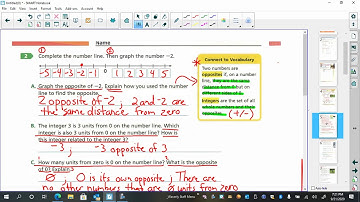 Name
2 Complete the number line. Then graph the number −2.
-5 -4 -3 -2 -1 0 1 2 3 4 5
A. Graph the opposite of −2. Explain how you used the number
line to find the opposite.
2 opposite of -2, 2 and -2 are
the same distance from zero
B. The integer 3 is 3 units from 0 on the number line. Which
integer is also 3 units from 0 on the number line? How is
this integer related to the integer 3?
-3, -3 opposite of 3
C. How many units from zero is 0 on the number line? What is the opposite
of 0? Explain.
0, 0 is its own opposite, There are
no other numbers that are 0 units from zero
Connect to Vocabulary
Two numbers are
opposites if, on a number
line, they are the same
distance from 0 but on
different sides of 0.
Integers are the set of all
whole numbers and their
opposites. (+/-)